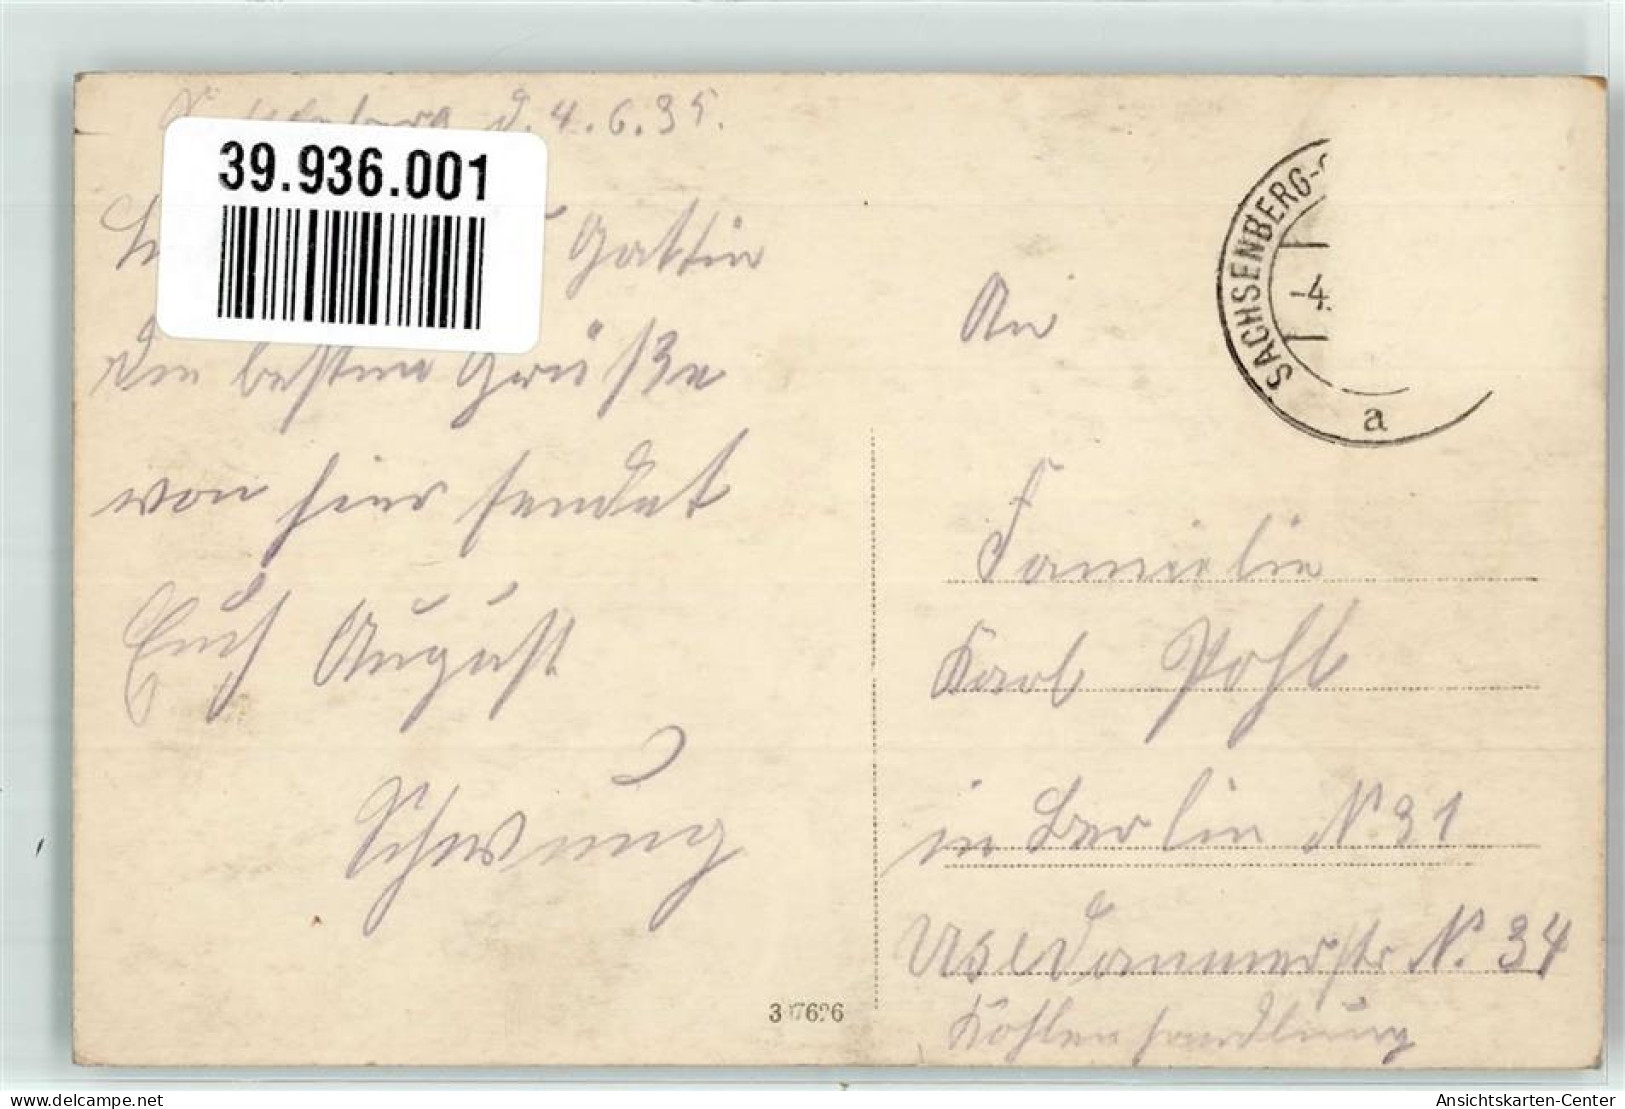 d. 4.6.35.
39.936.001
Gattin
die besten Grüße
von hier sendet
Euch August
Schwung
An
Familie
Karl Pohl
in Berlin N 31
Usedammerstr N. 34
Kohlenhandlung
SACHSENBERG-
-4.
a
delcampe.net
Ansichtskarten-Center